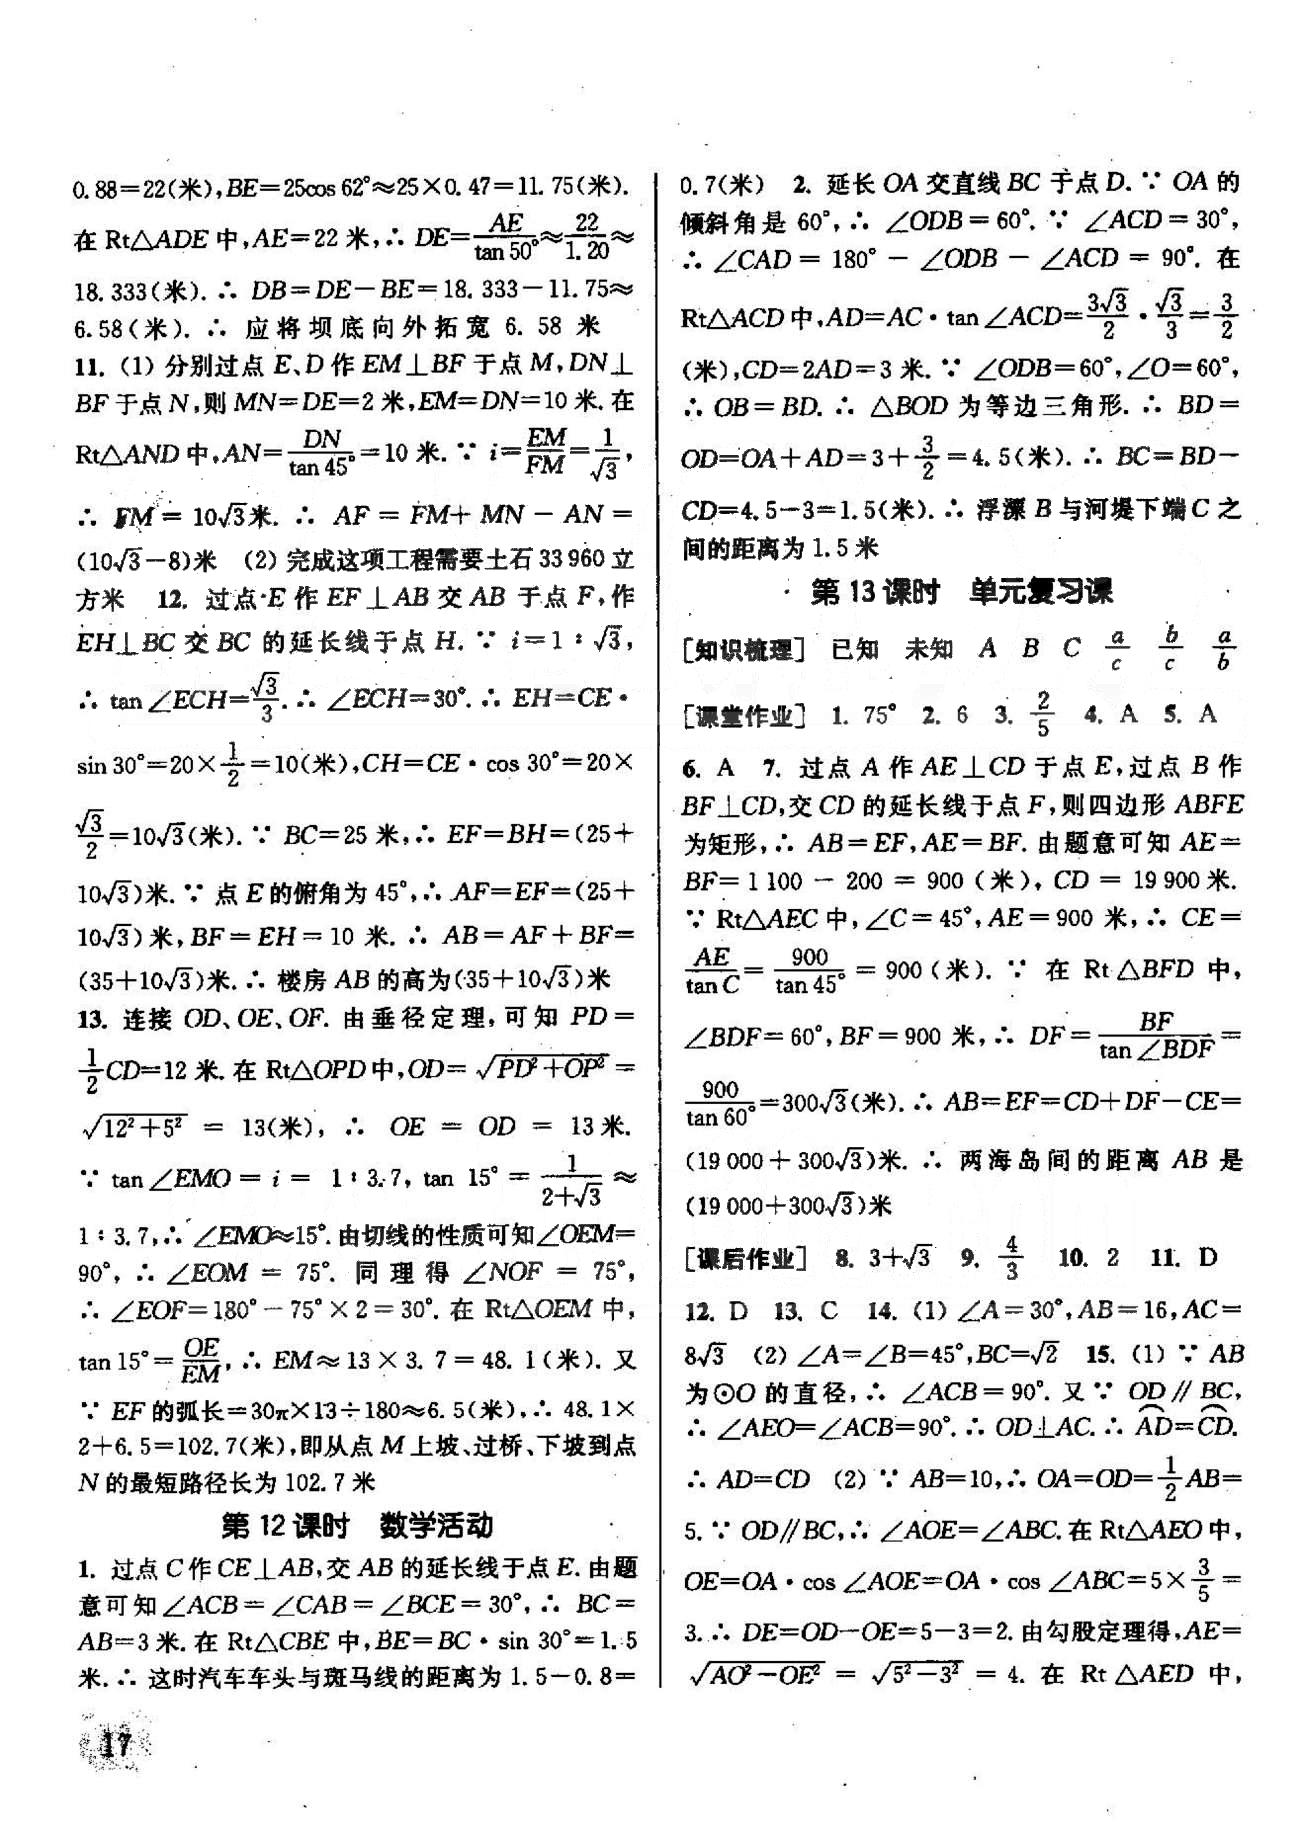 0.88=22(米),BE=25cos 62°≈25×0.47=11.75(米).
在 Rt△ADE 中,AE=22 米,∴ DE=AE/tan 50°≈22/1.20≈
18.333(米).∴ DB=DE-BE=18.333-11.75≈
6.58(米).∴ 应将坝底向外拓宽 6.58 米
11. (1) 分别过点 E、D 作 EM⊥BF 于点 M,DN⊥
BF 于点 N,则 MN=DE=2 米,EM=DN=10 米.在
Rt△AND 中,AN=DN/tan 45°=10 米.∵ i=EM/FM=1/√3,
∴ FM=10√3米.∴ AF=FM+MN-AN=
(10√3-8)米 (2) 完成这项工程需要土石 33 960 立
方米 12. 过点 E 作 EF⊥AB 交 AB 于点 F,作
EH⊥BC 交 BC 的延长线于点 H.∵ i=1∶√3,
∴ tan∠ECH=√3/3.∴ ∠ECH=30°.∴ EH=CE·
sin 30°=20×1/2=10(米),CH=CE·cos 30°=20×
√3/2=10√3(米).∵ BC=25 米,∴ EF=BH=(25+
10√3)米.∵ 点 E 的俯角为 45°,∴ AF=EF=(25+
10√3)米,BF=EH=10 米.∴ AB=AF+BF=
(35+10√3)米.∴ 楼房 AB 的高为(35+10√3)米
13. 连接 OD、OE、OF. 由垂径定理,可知 PD=
1/2CD=12 米.在 Rt△OPD 中,OD=√(PD²+OP²)=
√(12²+5²)=13(米),∴ OE=OD=13 米.
∵ tan∠EMO=i=1∶3.7,tan 15°=1/(2+√3)≈
1∶3.7,∴ ∠EMO≈15°.由切线的性质可知∠OEM=
90°,∴ ∠EOM=75°.同理得∠NOF=75°,
∴ ∠EOF=180°-75°×2=30°.在 Rt△OEM 中,
tan 15°=OE/EM,∴ EM≈13×3.7=48.1(米).又
∵ EF 的弧长=30π×13÷180≈6.5(米),∴ 48.1×
2+6.5=102.7(米),即从点 M 上坡、过桥、下坡到点
N 的最短路径长为 102.7 米
第 12 课时 数学活动
1. 过点 C 作 CE⊥AB,交 AB 的延长线于点 E.由题
意可知∠ACB=∠CAB=∠BCE=30°,∴ BC=
AB=3 米.在 Rt△CBE 中,BE=BC·sin 30°=1.5
米.∴ 这时汽车车头与斑马线的距离为 1.5-0.8=
17
0.7(米) 2. 延长 OA 交直线 BC 于点 D.∵ OA 的
倾斜角是 60°,∴ ∠ODB=60°.∵ ∠ACD=30°,
∴ ∠CAD=180°-∠ODB-∠ACD=90°.在
Rt△ACD 中,AD=AC·tan∠ACD=3√3/2·√3/3=3/2
(米),CD=2AD=3 米.∵ ∠ODB=60°,∠O=60°,
∴ OB=BD.∴ △BOD 为等边三角形.∴ BD=
OD=OA+AD=3+3/2=4.5(米).∴ BC=BD-
CD=4.5-3=1.5(米).∴ 浮漂 B 与河堤下端 C 之
间的距离为 1.5 米
第 13 课时 单元复习课
[知识梳理] 已知 未知 A B C a/c b/c a/b
[课堂作业] 1. 75° 2. 6 3. 2/5 4. A 5. A
6. A 7. 过点 A 作 AE⊥CD 于点 E,过点 B 作
BF⊥CD,交 CD 的延长线于点 F,则四边形 ABFE
为矩形,∴ AB=EF,AE=BF.由题意可知 AE=
BF=1 100-200=900(米),CD=19 900 米.
∵ Rt△AEC 中,∠C=45°,AE=900 米,∴ CE=
AE/tan C=900/tan 45°=900(米).∵ 在 Rt△BFD 中,
∠BDF=60°,BF=900 米,∴ DF=BF/tan∠BDF=
900/tan 60°=300√3(米).∴ AB=EF=CD+DF-CE=
(19 000+300√3)米.∴ 两海岛间的距离 AB 是
(19 000+300√3)米
[课后作业] 8. 3+√3 9. 4/3 10. 2 11. D
12. D 13. C 14. (1) ∠A=30°,AB=16,AC=
8√3 (2) ∠A=∠B=45°,BC=√2 15. (1) ∵ AB
为⊙O 的直径,∴ ∠ACB=90°.又∵ OD∥BC,
∴ ∠AEO=∠ACB=90°.∴ OD⊥AC.∴ A͡D=C͡D.
∴ AD=CD (2) ∵ AB=10,∴ OA=OD=1/2AB=
5.∵ OD∥BC,∴ ∠AOE=∠ABC.在 Rt△AEO 中,
OE=OA·cos∠AOE=OA·cos∠ABC=5×3/5=
3.∴ DE=OD-OE=5-3=2.由勾股定理得,AE=
√(AO²-OE²)=√(5²-3²)=4.在 Rt△AED 中,